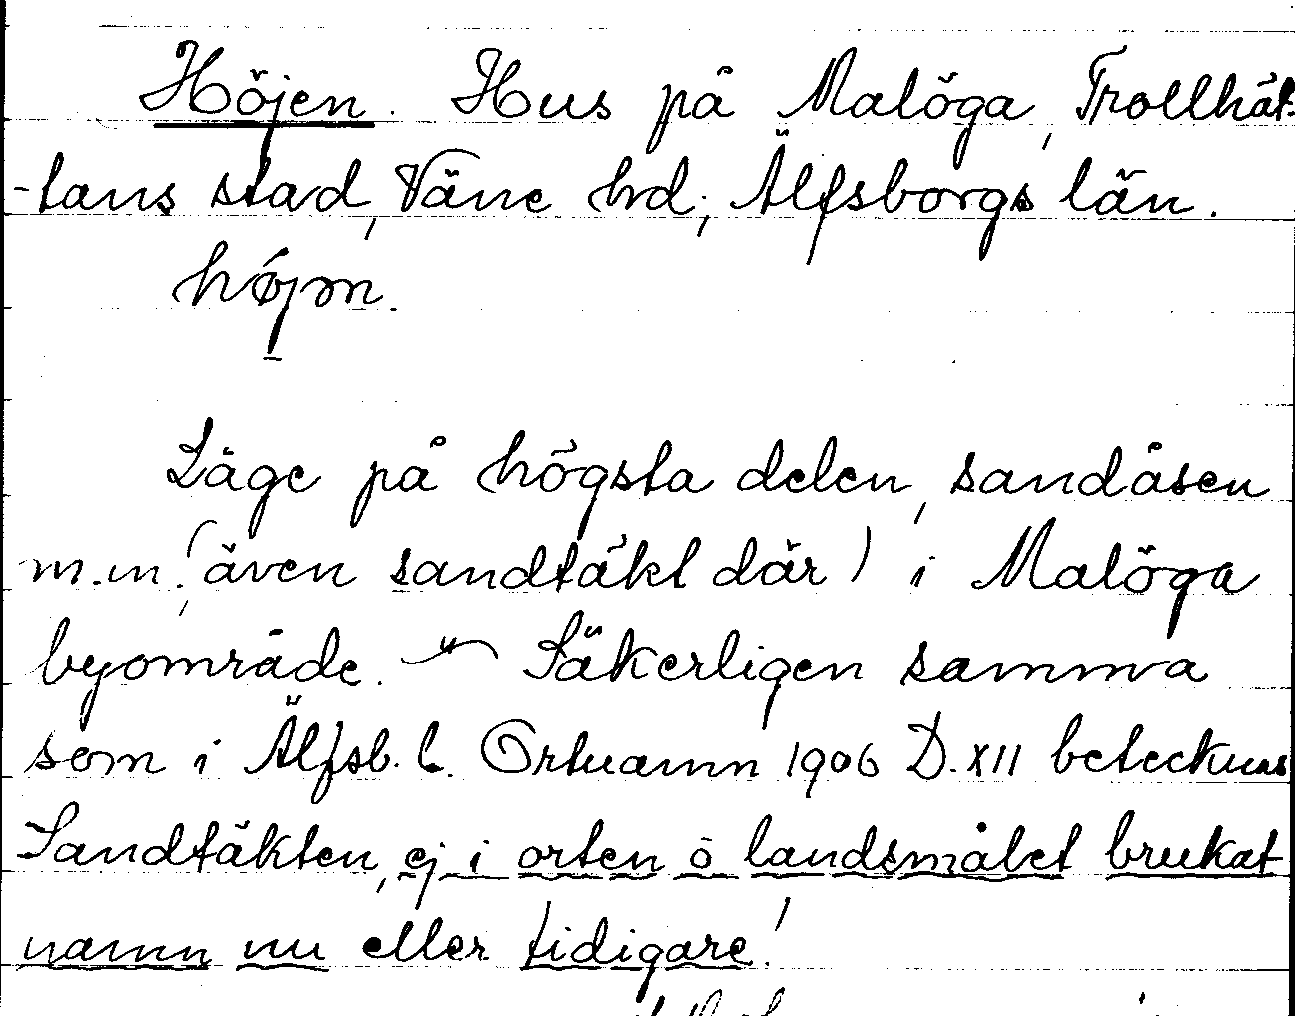 Höjen. Hus på Malöga, Trollhät-
-tans stad, Väne hd; Älfsborgs län.
Läge på högsta delen, sandåsen
m.m. (även sandtäkt där) i Malöga
byområde. — Säkerligen samma
som i Älfsb. l. Ortnamn 1906 D. XII betecknas
Sandtäkten, ej i orten o landsmålet brukat
namn nu eller tidigare!